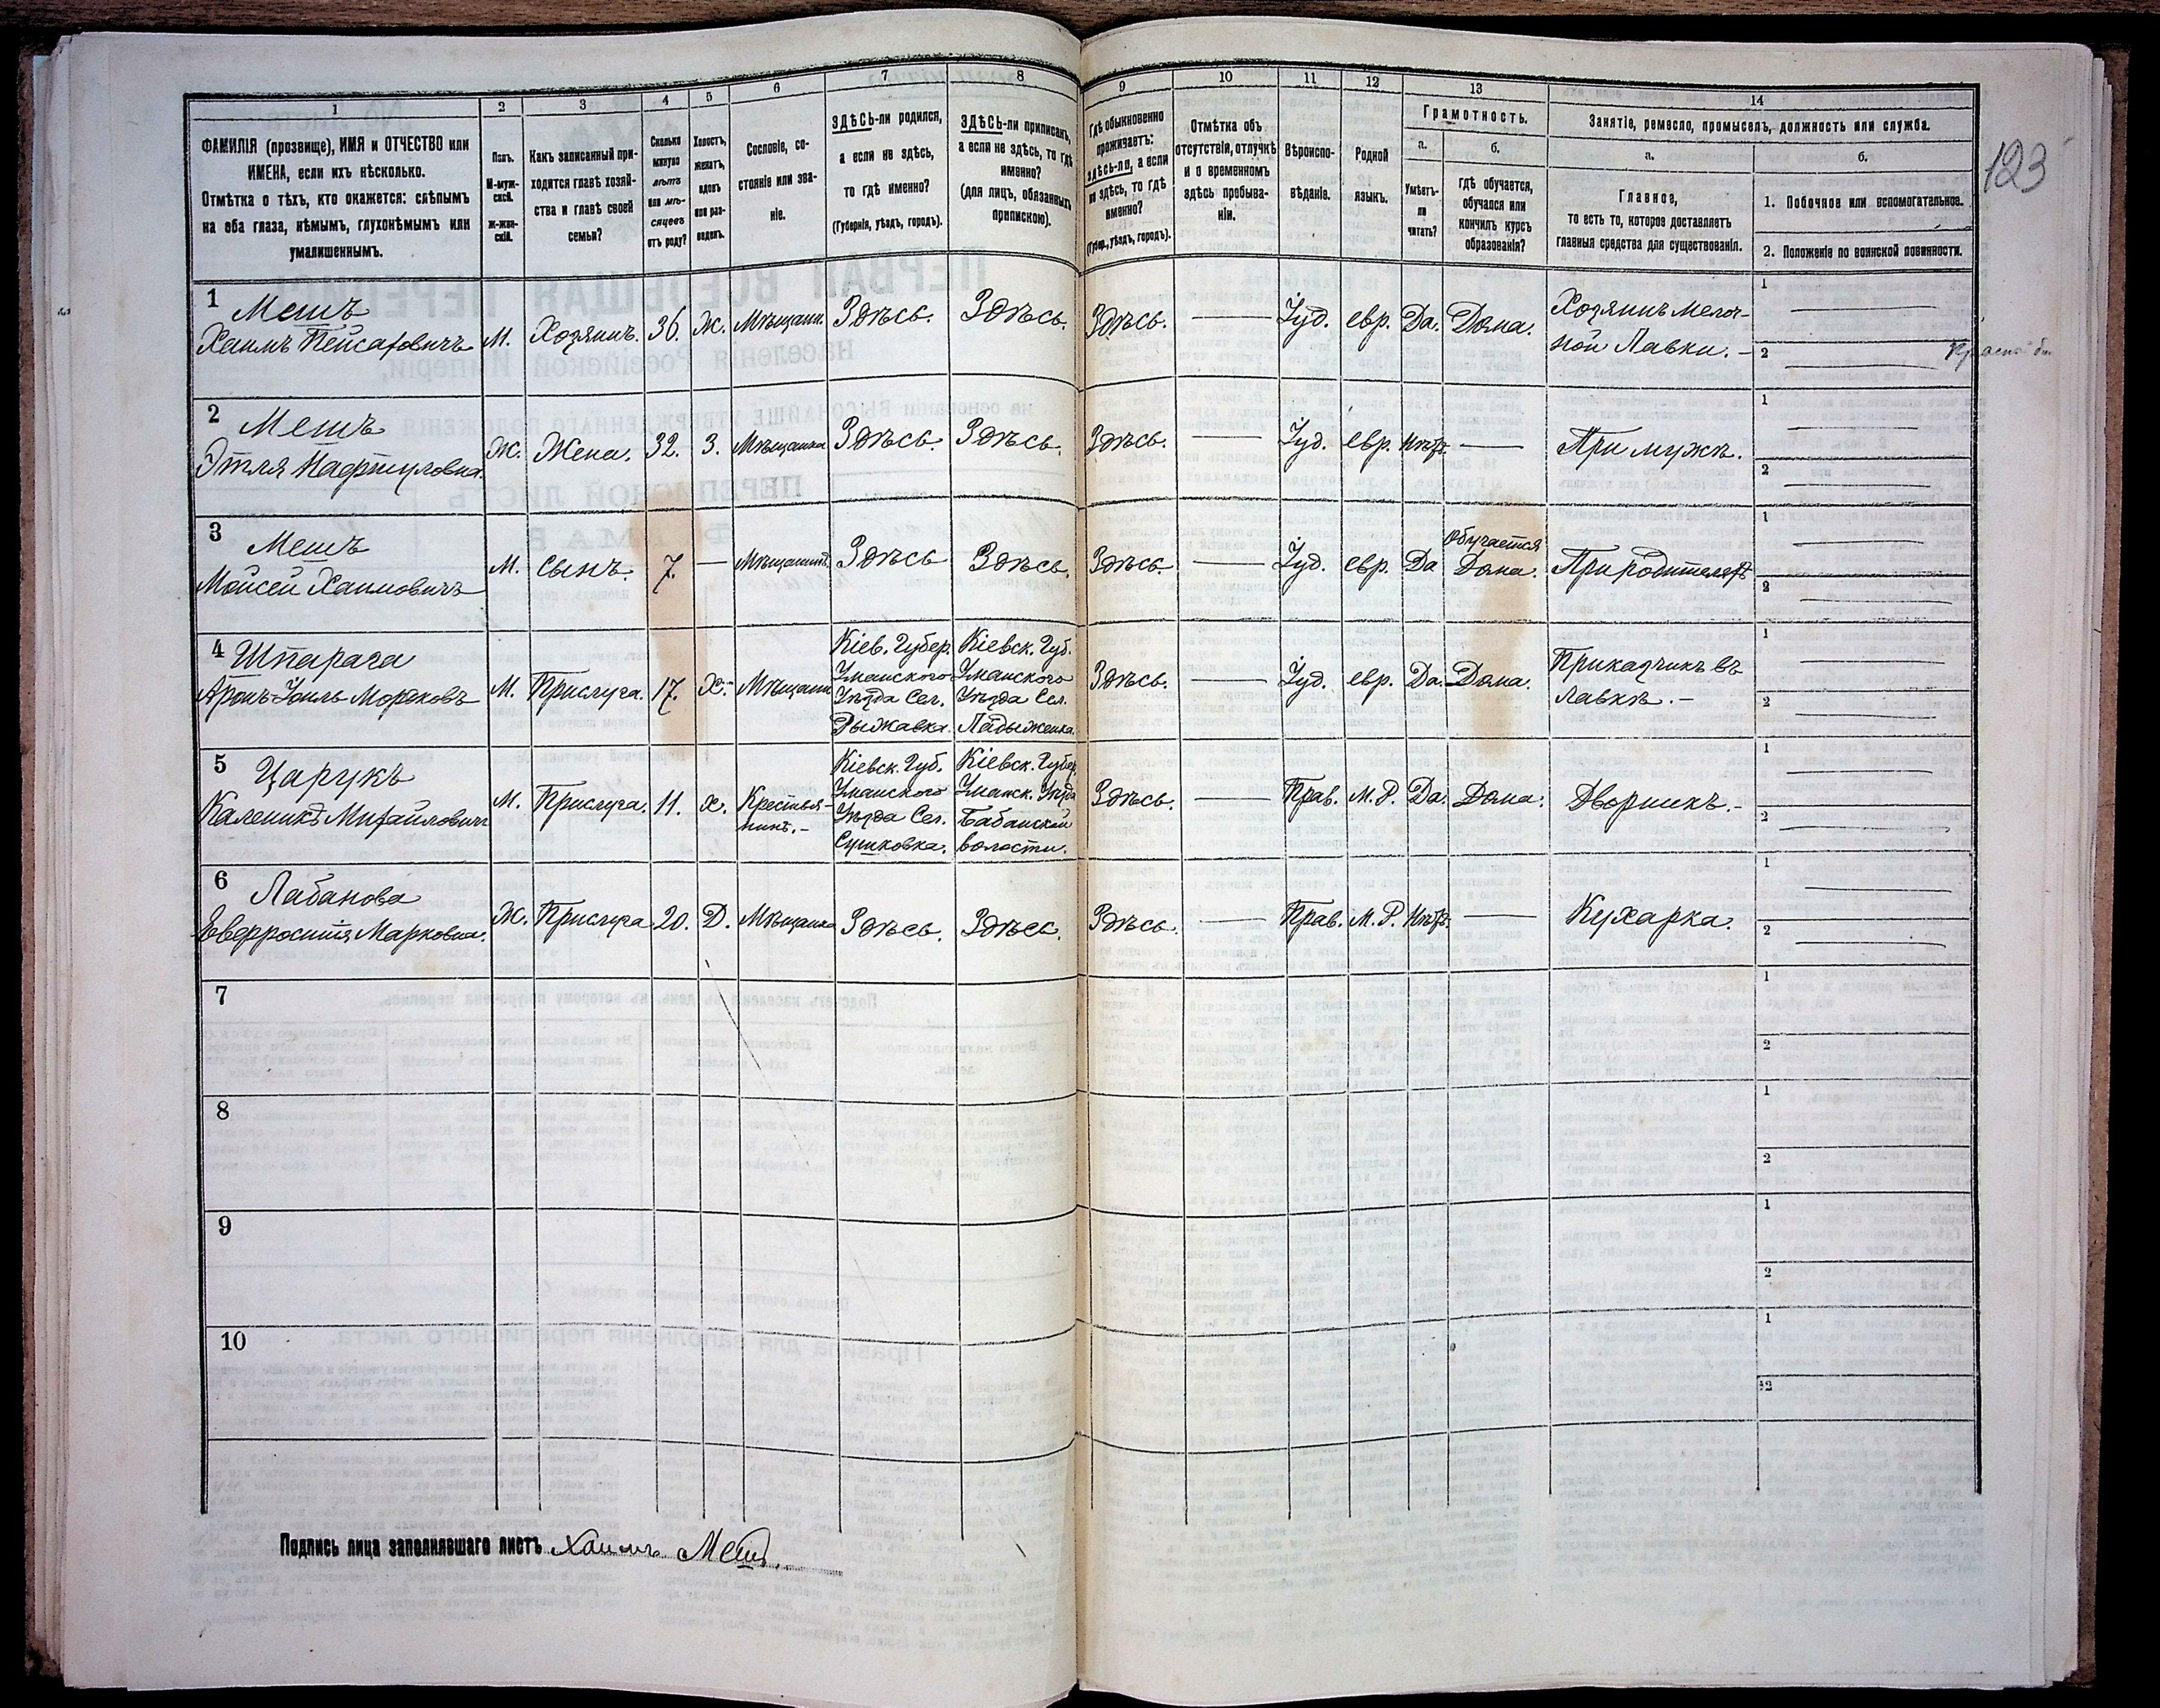 1
2
3
4
5
6
7
8
9
10
11
12
13
14
ФАМИЛІЯ (прозвище), ИМЯ и ОТЧЕСТВО или
ИМЕНА, если ихъ нѣсколько.
Отмѣтка о тѣхъ, кто окажется: слѣпымъ
на оба глаза, нѣмымъ, глухонѣмымъ или
умалишеннымъ.
Полъ.
М-муж-
ской.
Ж-жен-
скій.
Какъ записанный при-
ходится главѣ хозяй-
ства и главѣ своей
семьи?
Сколько
минуло
лѣтъ
или мѣ-
сяцевъ
отъ роду?
Холостъ,
женатъ,
вдовъ
или раз-
веденъ.
Сословіе, со-
стояніе или зва-
ніе.
ЗДѢСЬ-ли родился,
а если не здѣсь,
то гдѣ именно?
(Губернія, уѣздъ, городъ).
ЗДѢСЬ-ли приписанъ,
а если не здѣсь, то гдѣ
именно?
(для лицъ, обязанныхъ
припискою).
Гдѣ обыкновенно
проживаетъ:
здѣсь-ли, а если
не здѣсь, то гдѣ
именно?
(Губер., уѣздъ, городъ).
Отмѣтка объ
отсутствіи, отлучкѣ
и о временномъ
здѣсь пребыва-
ніи.
Вѣроиспо-
вѣданіе.
Родной
языкъ.
Грамотность.
а.
Умѣетъ-
ли
читать?
б.
гдѣ обучается,
обучался или
кончилъ курсъ
образованія?
Занятіе, ремесло, промыселъ, должность или служба.
а.
Главное,
то есть то, которое доставляетъ
главныя средства для существованія.
б.
1. Побочное или вспомогательное.
2. Положеніе по воинской повинности.
123
1 Мешъ
Хаимъ Пейсаховичъ М. Хозяинъ. 36. Ж. Мѣщанин. Здѣсь. Здѣсь. Здѣсь. — Іуд. евр. Да. Дома. Хозяинъ мелоч-
ной Лавки. –
1
2
2 Мешъ
Этля Нафтуловна. Ж. Жена. 32. З. Мѣщанка Здѣсь. Здѣсь. Здѣсь. — Іуд. евр. Нѣтъ. — При мужѣ.
1
2
3 Мешъ
Мойсей Хаимовичъ М. Сынъ. 7. — Мѣщанинъ Здѣсь Здѣсь. Здѣсь. — Іуд. евр. Да Обучается
Дома. При родителяхъ
1
2
4 Шпарага
Аронъ-ІоильМоряковъ М. Прислуга. 17. Х. Мѣщанин
Кіев. Губер.
Уманского
Уѣзда Сел.
Рыжавка.
Кіевск. Губ.
Уманского
Уѣзда Сел.
Ладыженка.
Здѣсь. — Іуд. евр. Да. Дома. Прикащикъ въ
лавкѣ. –
1
2
5 Царукъ
Каленикъ Михайлович М. Прислуга. 11. х. Крестья-
нинъ. –
Кіевск. Губ.
Уманского
Уѣзда Сел.
Сушковка.
Кіевск. Губер.
Уманск. Уѣзда
Бабанской
волости.
Здѣсь. — Прав. М. Р. Да. Дома. Дворникъ. –
1
2
6 Лабанова
Евфросинія Марковна. Ж. Прислуга 20. Д. Мѣщанка Здѣсь. Здѣсь. Здѣсь. — Прав. М. Р. Нѣтъ. — Кухарка.
1
2
7
1
2
8
1
2
9
1
2
10
1
2
Подпись лица заполнявшаго листъ Хаимъ Мешъ.